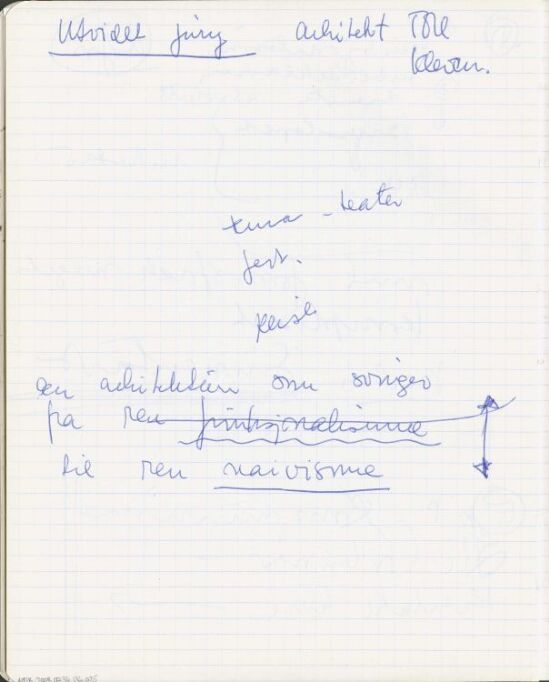 Utvidet jury arkitekt Tore
Kleven.
tema - teater
fest.
reise
en arkitektur som svinger
fra ren funksjonalisme
til ren naivisme